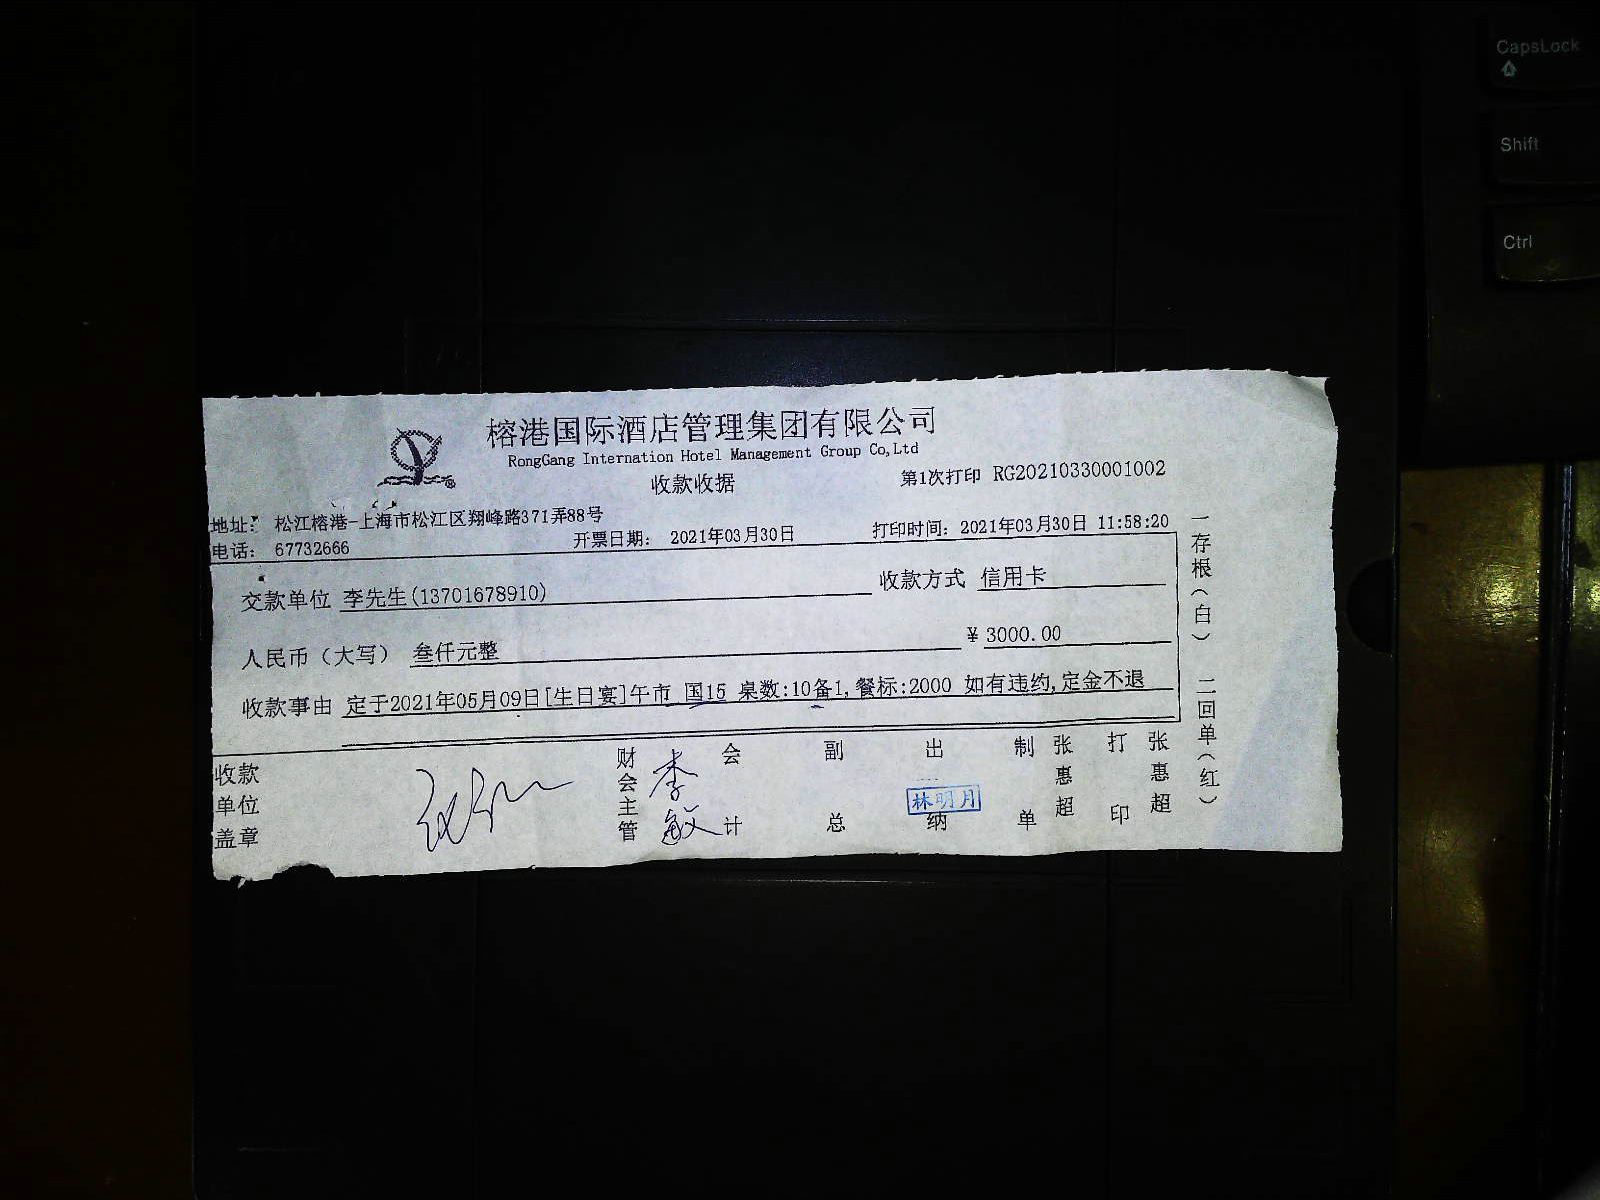 榕港国际酒店管理集团有限公司
RongGang Internation Hotel Management Group Co,Ltd
收款收据
第1次打印 RG20210330001002
地址: 松江榕港-上海市松江区翔峰路371弄88号
电话: 67732666
开票日期: 2021年03月30日
打印时间: 2021年03月30日 11:58:20
交款单位 李先生(13701678910)
收款方式 信用卡
人民币(大写) 叁仟元整
¥ 3000.00
收款事由 定于2021年05月09日[生日宴]午市 国15 桌数:10备1,餐标:2000 如有违约,定金不退
收款单位盖章
财会主管 李敏
会计
副总
出纳
林明月
制单 张惠超
打印 张惠超
一存根(白) 二回单(红)
CapsLock
Shift
Ctrl